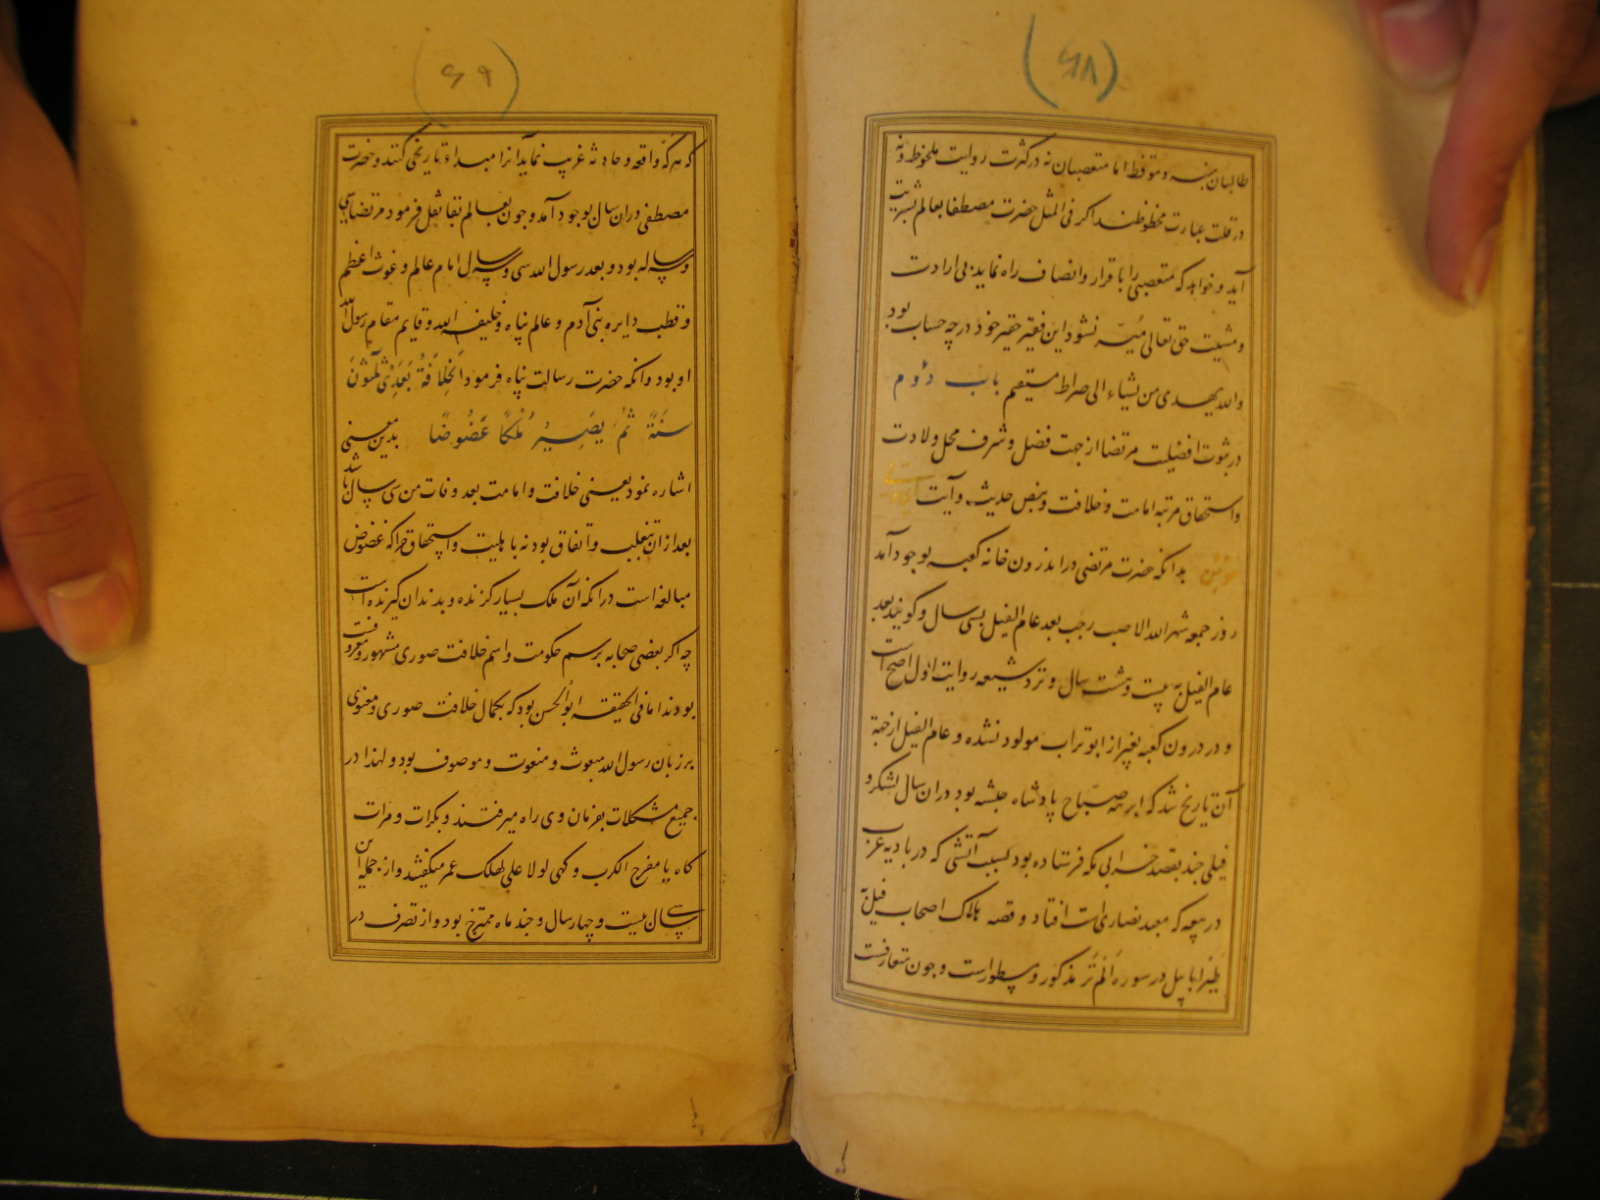 (۶۸)
طالبان بسنه و متوقظ اما متعصبان نه در کثرت روایت ملحوظ و نه
در قلت عبارت محظوظند اکر فی المثل حضرت مصطفا بعالم بشریت
آید و خواهد که متعصبی را باقرار و انصاف راه نماید بی ارادت
و مشیت حق تعالی میسر نشود این فقیر حقیر خود در چه حساب بود
والله یهدی من یشاء الی صراط مستقیم باب دوم
در ثبوت افضلیت مرتضا از جهت فضل و شرف محل ولادت
و استحقاق مرتبه امامت و خلافت و بنص حدیث و آیت
بدانکه حضرت مرتضی در اندرون خانه کعبه بوجود آمد
روز جمعه شهر الله الاصب رجب بعد عام الفیل بسی سال و کویند بعد
عام الفیل به بیست و هشت سال و نزد شیعه روایت اول اصح است
و در درون کعبه بغیر از ابو تراب مولود نشده و عام الفیل از جهة
آن تاریخ شد که ابرهه صباح پادشاه حبشه بود دران سال لشکر و
فیلی چند بقصد خرابی مکه فرستاده بود بسبب آتشی که در بادیه عرب
در بیعه که معبد نصاری است افتاد و قصه هلاک اصحاب فیل به
طیرا ابابیل در سوره الم تر مذکور و مسطور است و چون متعارفست
(۶۹)
که هر که واقعه و حادثه غریب نماید آنرا مبداء تاریخی کنند و حضرت
مصطفی دران سال بوجود آمد و چون بعالم بقا نقل فرمود مرتضا سی
و سه ساله بود و بعد رسول الله سی و سه سال امام عالم و غوث اعظم
و قطب دایره بنی آدم و عالم پناه و خلیفه الله و قایم مقام رسول الله
او بود وانکه حضرت رسالت پناه فرمود الخلافة بعدی ثلثون
سنة ثم یصیر ملکا عضوضا بدین معنی
اشاره نمود یعنی خلافت و امامت بعد وفات من سی سال باشد
بعد ازان بتغلب و اتفاق بود نه باهلیت و استحقاق چرا که عضوض
مبالغه است در انکه آن ملک بسیار کزنده و بدندان کیرنده است
چه اکر بعضی صحابه برسم حکومت و اسم خلافت صوری مشهور و معروفت
بودند اما فی الحقیقه ابو الحسن بود که بکمال خلافت صوری و معنوی
بر زبان رسول الله مبعوث و منعوت و موصوف بود و لهذا در
جمیع مشکلات بفرمان وی راه میرفتند و بکرات و مرات
کاه یا مفرج الکرب و کهی لولا علی لهلک عمر میکفتند و از جمله این
سی سال بیست و چهار سال و چند ماه ممتنع بود و از تصرف در